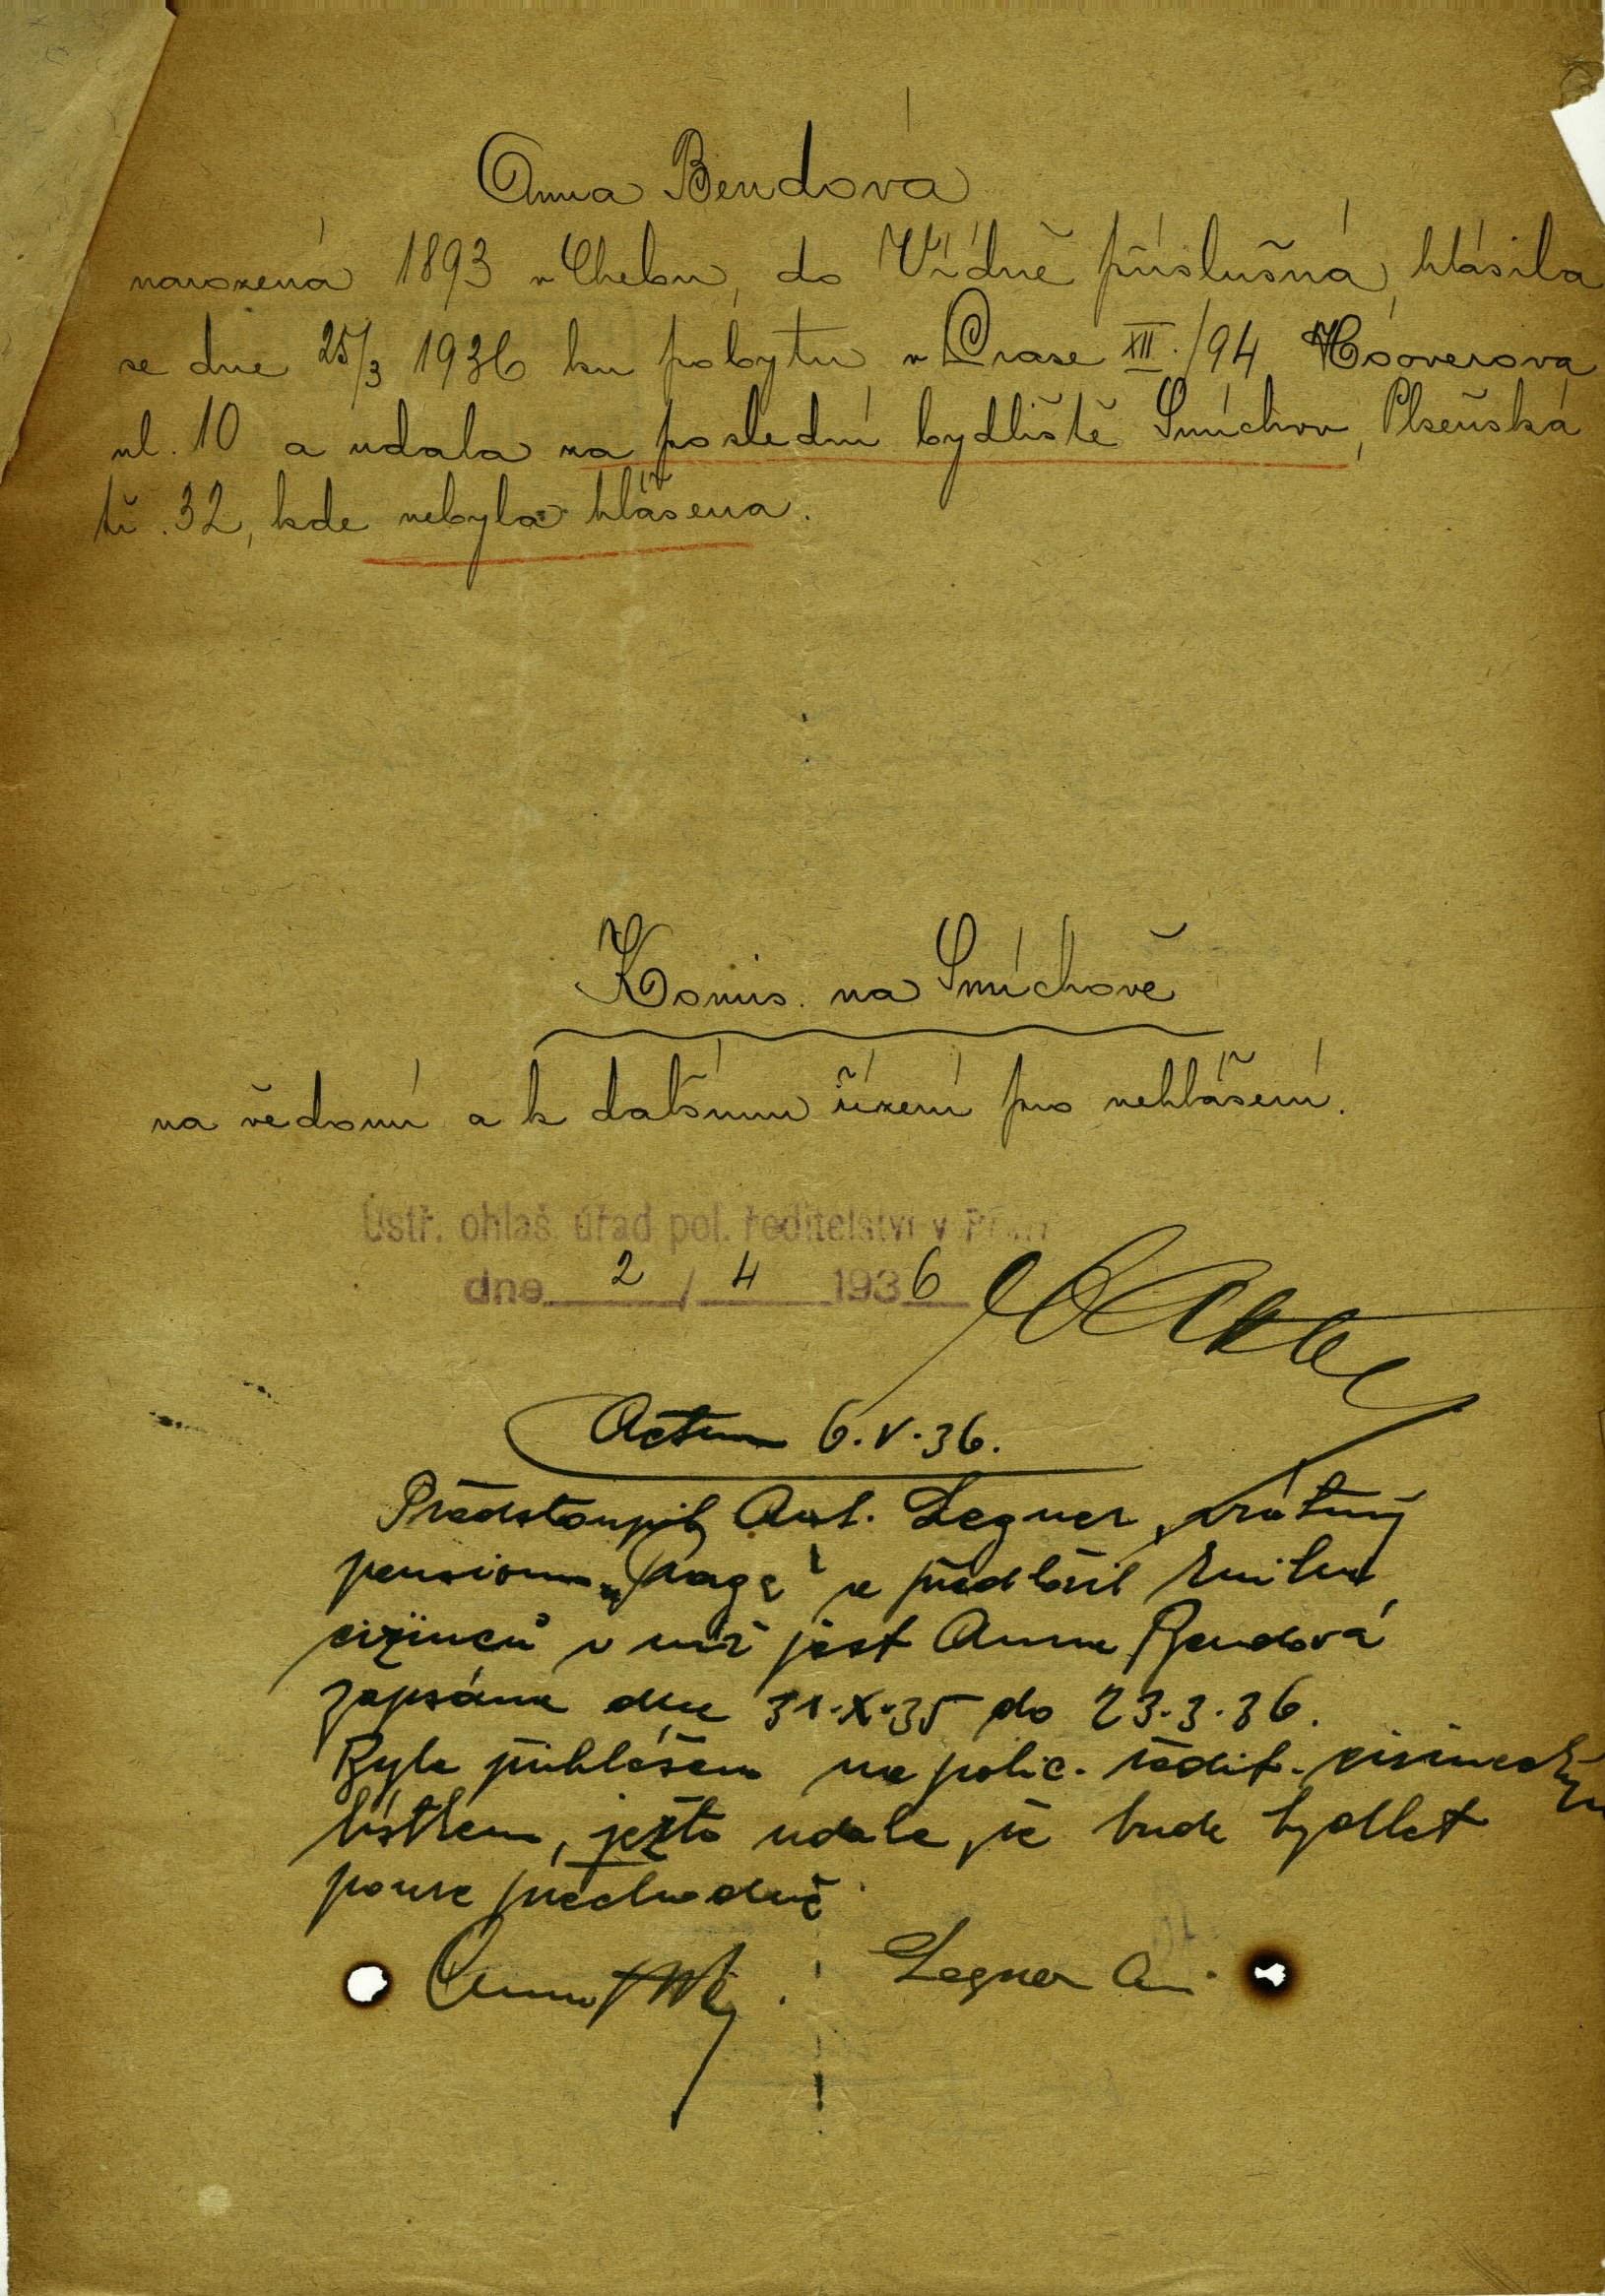 Anna Bendová
narozená 1893 v Chebu, do Vídně příslušná, hlásila
se dne 25/3 1936 ku pobytu v Praze XII./94 Hooverova
ul. 10 a udala za poslední bydliště Smíchov, Plzeňská
tř. 32, kde nebyla hlášena.
Komis. na Smíchově
na vědomí a k dalšímu řízení pro nehlášení.
Ústř. ohlaš. úřad pol. ředitelství v
dne 2 / 4 1936
Actum 6.V.36.
Předstoupil Ant. Legner, vrátný
pensionu „Praga" a předložil knihu
cizinců v níž jest Anna Bendová
zapsána dne 31.X.35 do 23.3.36.
Byla přihlášena na polic. ředit. cizineckým
lístkem, ježto udala, že bude bydlet
pouze přechodně.
Legner